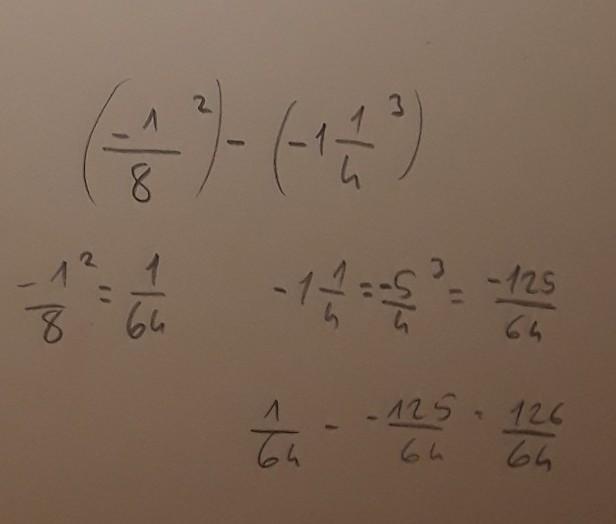 (-1/8 ²) - (-1 1/4 ³)
-1/8 ² = 1/64 -1 1/4 = -5/4 ³ = -125/64
1/64 - -125/64 = 126/64